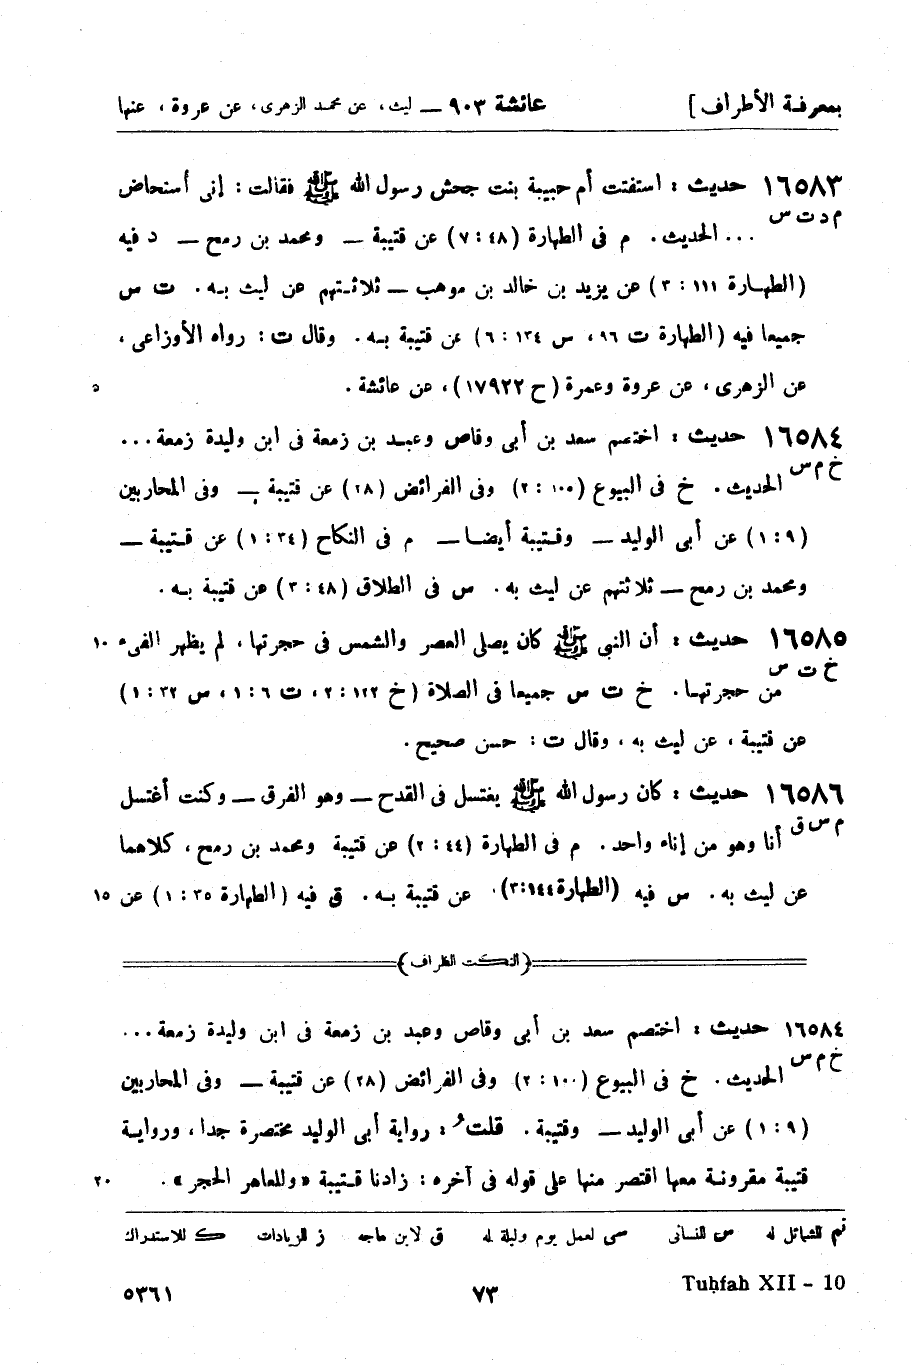 بمعرفة الأطراف] عائشة ٩٠٣ — ليث، عن محمد الزهرى، عن عروة، عنها
١٦٥٨٣ حديث : استفتت أم حبيبة بنت جحش رسول الله ﷺ فقالت : إنى أستحاض
م د ت س
... الحديث. م فى الطهارة (٤٨ : ٧) عن قتيبة — ومحمد بن رمح — د فيه
(الطهارة ١١١ : ٣) عن يزيد بن خالد بن موهب — ثلاثتهم عن ليث به. ت س
جميعا فيه (الطهارة ت ٩٦، س ١٣٤ : ٦) عن قتيبة به. وقال ت : رواه الأوزاعى،
عن الزهرى، عن عروة وعمرة (ح ١٧٩٢٢)، عن عائشة. ٥
١٦٥٨٤ حديث : اختصم سعد بن أبى وقاص وعبد بن زمعة فى ابن وليدة زمعة...
خ م س
الحديث. خ فى البيوع (١٠٠ : ٢) وفى الفرائض (٢٨) عن قتيبة — وفى المحاربين
(٩ : ١) عن أبى الوليد — وقتيبة أيضا — م فى النكاح (٣٤ : ١) عن قتيبة —
ومحمد بن رمح — ثلاثتهم عن ليث به. س فى الطلاق (٤٨ : ٣) عن قتيبة به.
١٦٥٨٥ حديث : أن النبى ﷺ كان يصلى العصر والشمس فى حجرتها، لم يظهر الفىء ١٠
خ ت س
من حجرتها. خ ت س جميعا فى الصلاة (خ ١٢٢ : ٢، ت ٦ : ١، س ٣٢ : ١)
عن قتيبة، عن ليث به، وقال ت : حسن صحيح.
١٦٥٨٦ حديث : كان رسول الله ﷺ يغتسل فى القدح — وهو الفرق — وكنت أغتسل
م س ق
أنا وهو من إناء واحد. م فى الطهارة (٤٤ : ٢) عن قتيبة ومحمد بن رمح، كلاهما
عن ليث به. س فيه (الطهارة ١٤٤:٣). عن قتيبة به. ق فيه (الطهارة ٣٥ : ١) عن ١٥
(النكت الظراف)
١٦٥٨٤ حديث : اختصم سعد بن أبى وقاص وعبد بن زمعة فى ابن وليدة زمعة...
خ م س
الحديث. خ فى البيوع (١٠٠ : ٢) وفى الفرائض (٢٨) عن قتيبة — وفى المحاربين
(٩ : ١) عن أبى الوليد — وقتيبة. قلت : رواية أبى الوليد مختصرة جدا، ورواية
قتيبة مقرونة معها اقتصر منها على قوله فى آخره : زادنا قتيبة «وللعاهر الحجر». ٢٠
تم للشمائل له س للنسائى سى لعمل يوم وليلة له ق لابن ماجه ز للزيادات ك للاستدراك
Tuḥfah XII - 10 ٧٣ ٥٣٦١